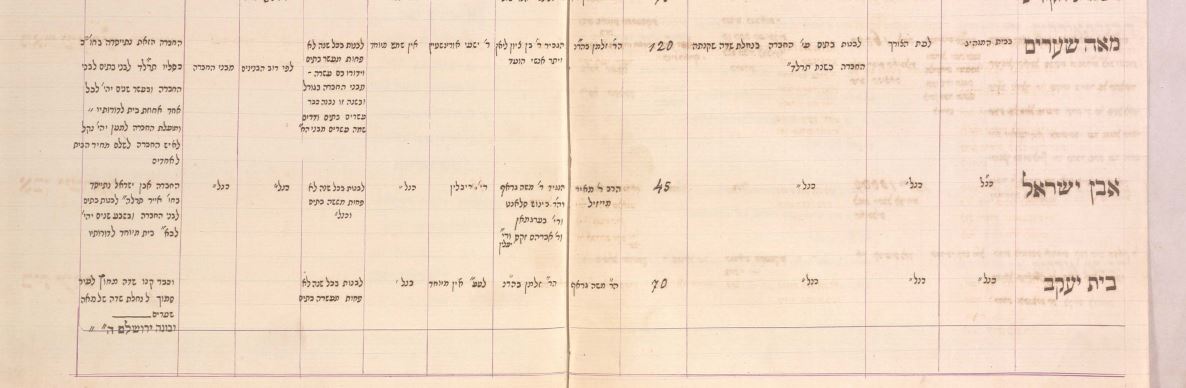 מאה שערים
בבית התנהיג
לבת הצורך
לבנות בתים עפ״י החברה בנחלת שדה שקנתה
החברה בשנת תרלד״
120
הר׳ זלמן בהר״נ
הגביר ר׳ בן ציון ליאן
ויתר אנשי הועד
ר׳ ישעי׳ אורינשטיין
אין שמש מיוחד
לבנות בכל שנה לא
פחות מעשר בתים
וידורו בם עשרה
מבני החברה בגורל
ובשנה זו נבנה כבר
עשרים בתים ודרים
שמה עשרים מבני הח״
לפי רוב הבנינים
מבני החברה
החברה הזאת נתייסדה בחו״ב
כסליו תרלד לבני בתים לבני
החברה ובעשר שנים יהי׳ לכל
אחד אחוזת בית לדורותיו ״
ותועלת החברה למען יהי׳ נקל
לאיש החברה לשלם מחיר הבית
לאחדים
אבן ישראל
כנ״ל
כנל״
כנל״
45
הרב ר׳ מאיר
הגביר ר׳ משה גראף
והר׳ ביינוש סלאנט
ור׳ אברהם זקס
ר׳ י׳ ריבלין
כנל״
לבנות בכל שנה לא
פחות מששה בתים
וכנל״
כנל״
כנל״
החברה אבן ישראל נתייסד
בחו׳ אייר תרלה״ לבנות בתים
לבני החברה ובשבע שנים יהי׳
לבא״ בית מיוחד לדורותיו
בית יעקב
כנל״
כנל״
כנל״
70
הר׳ משה גראף
הר״ זלמן בהר״נ
לע״ע אין מיוחד
כנל׳
לבנות בכל שנה לא
פחות מעשרה בתים
וכבר קנו שדה
סמוך לנחלת שדה של מאה
שערים
ובונה ירושלים ה״ ״